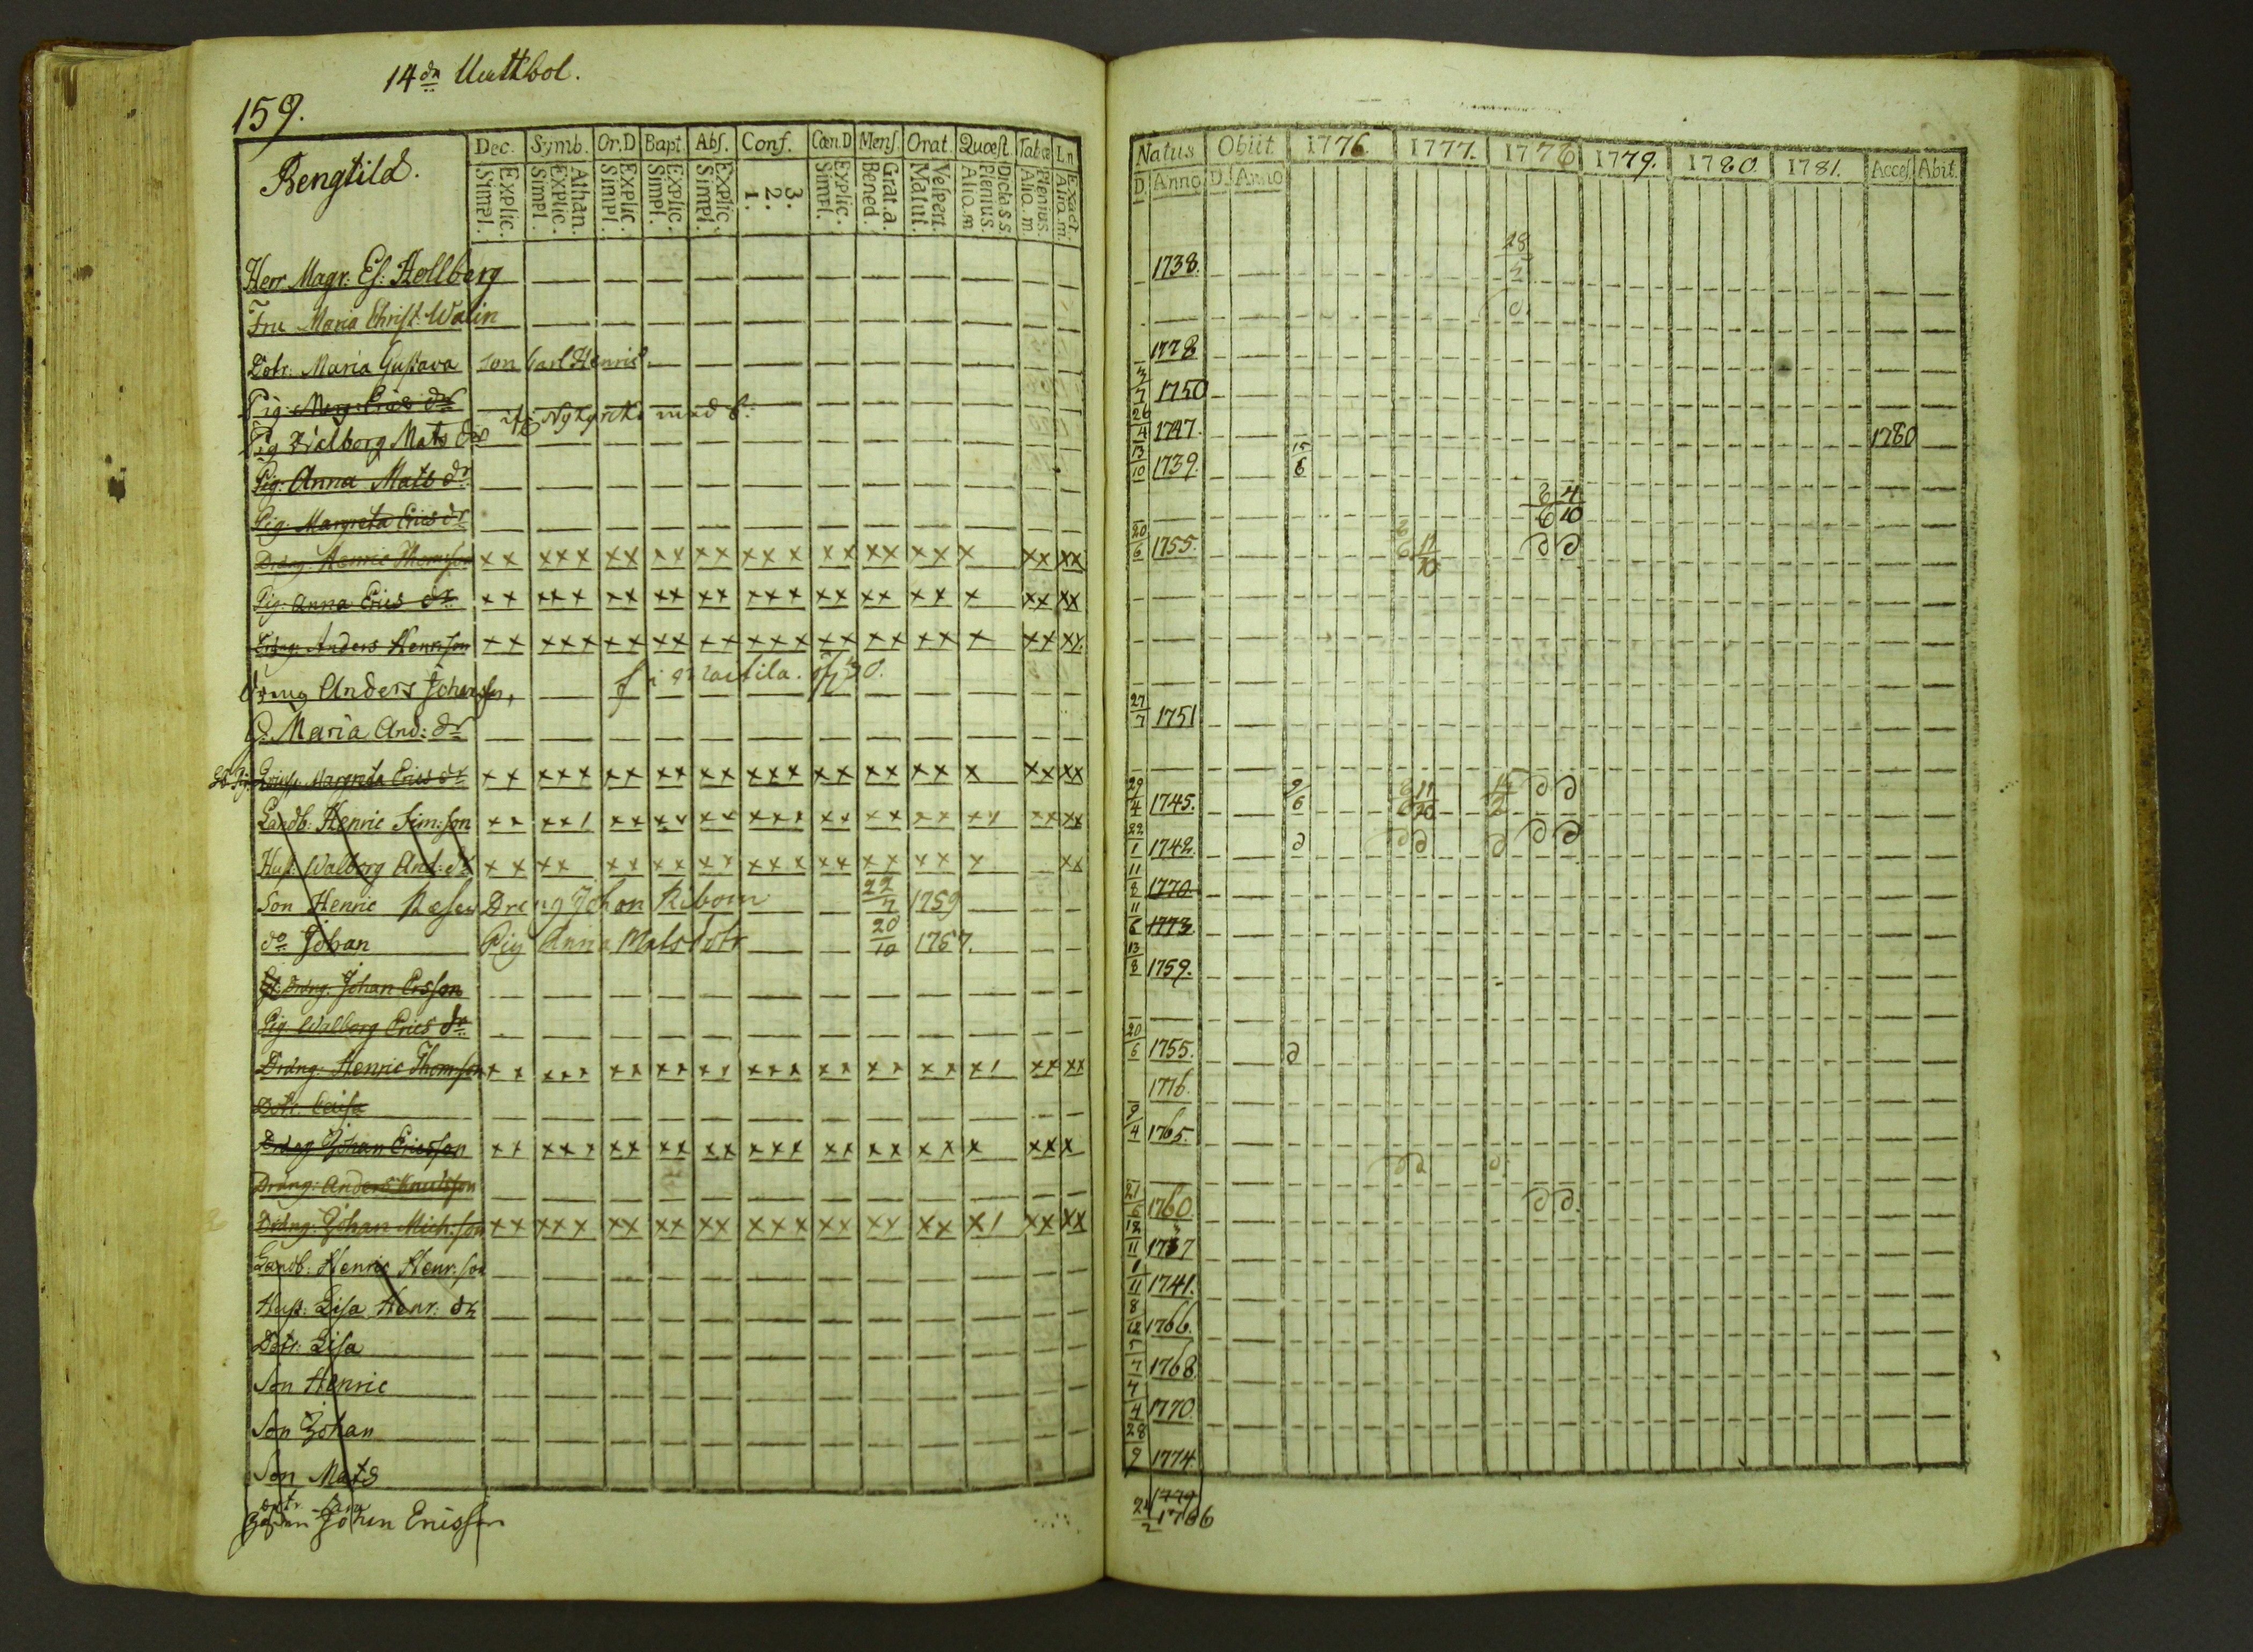 159.
14 dn
Bengtild.
Dec. Symb. Or.D Bapt. Abs. Conf. Cœn.D Mens. Orat. Quæst. Tabæ L n
Simpl. Explic. Simpl. Explic. Athan. Simpl. Explic. Simpl. Explic. Simpl. Explic. 1. 2. 3. Simpl. Explic. Bened. Grat. a. Matut. Vespert. Alio. m Plenius. Dicta s s. Alio. m Plenius. Alio. m. Exact.
Herr Magr: Es. Hollberg
Fru Maria Christ. Walin
Dotr. Maria Gustava son Carl Henric
Pig. Marg: Erics dr
Pig Walborg Mats dr
Pig. Anna Mats dr
Pig. Margreta Erics dr
Dräng. Henric Thomson xx xxx xx xx xx xxx xx xx xx x xx xx
Pig. Anna Erics dr xx xxx xx xx xx xxx xx xx xx x xx xx
Dräng. Anders Henrson xx xxx xx xx xx xxx xx xx xx x xx xx
dräng Anders Johansson
P. Maria And: dr
Margreta Erics dr xx xxx xx xx xx xxx xx xx xx x xx xx
Landb: Henric Sim:son xx xx/ xx xx xx xxx xx xx xx xx xx xx
Hust. Walborg And: dr xx xx xx xx xx xxx xx xx xx x xx
Son Henric Dreng Johan 22/7 1759
do Johan Pig Anna Mats dotr 20/10 1767.
Dräng. Johan Ersson
Pig. Walborg Erics dr
Dräng. Henric Thomson xx xxx xx xx xx xxx xx xx xx x/ xx xx
Dotr. Caisa
Dräng Johan Ericsson xx xxx xx xx xx xxx xx xx xx x xx x
Dräng: Anders Knutsson
Dräng: Johan Mich:son xx xxx xx xx xx xxx xx xx xx x/ xx xx
Landb: Henric Henr:son
Hust. Lisa Henr: dr
Dotr. Lisa
Son Henric
Son Johan
Son Mats
dotr
Johan Ericsson
Natus Obiit 1776. 1777. 1778 1779. 1780. 1781. Acces. Abit.
D. Anno D. Anno
1738. 28/5
1778
3/7 1750
26/4 1747. 1780
13/10 1739. 15/6
6/6 4/10
20/6 1755. 6/6 12/10
27/7 1751
29/4 1745. 9/6
22/1 1742.
11/8 1770.
11/6 1773
13/8 1759.
20/6 1755.
1776.
9/4 1765.
21/6 1760
18/11 1737
1/11 1741.
8/12 1766.
5/7 1768.
4/4 1770.
28/9 1774.
1779
24/2 1766